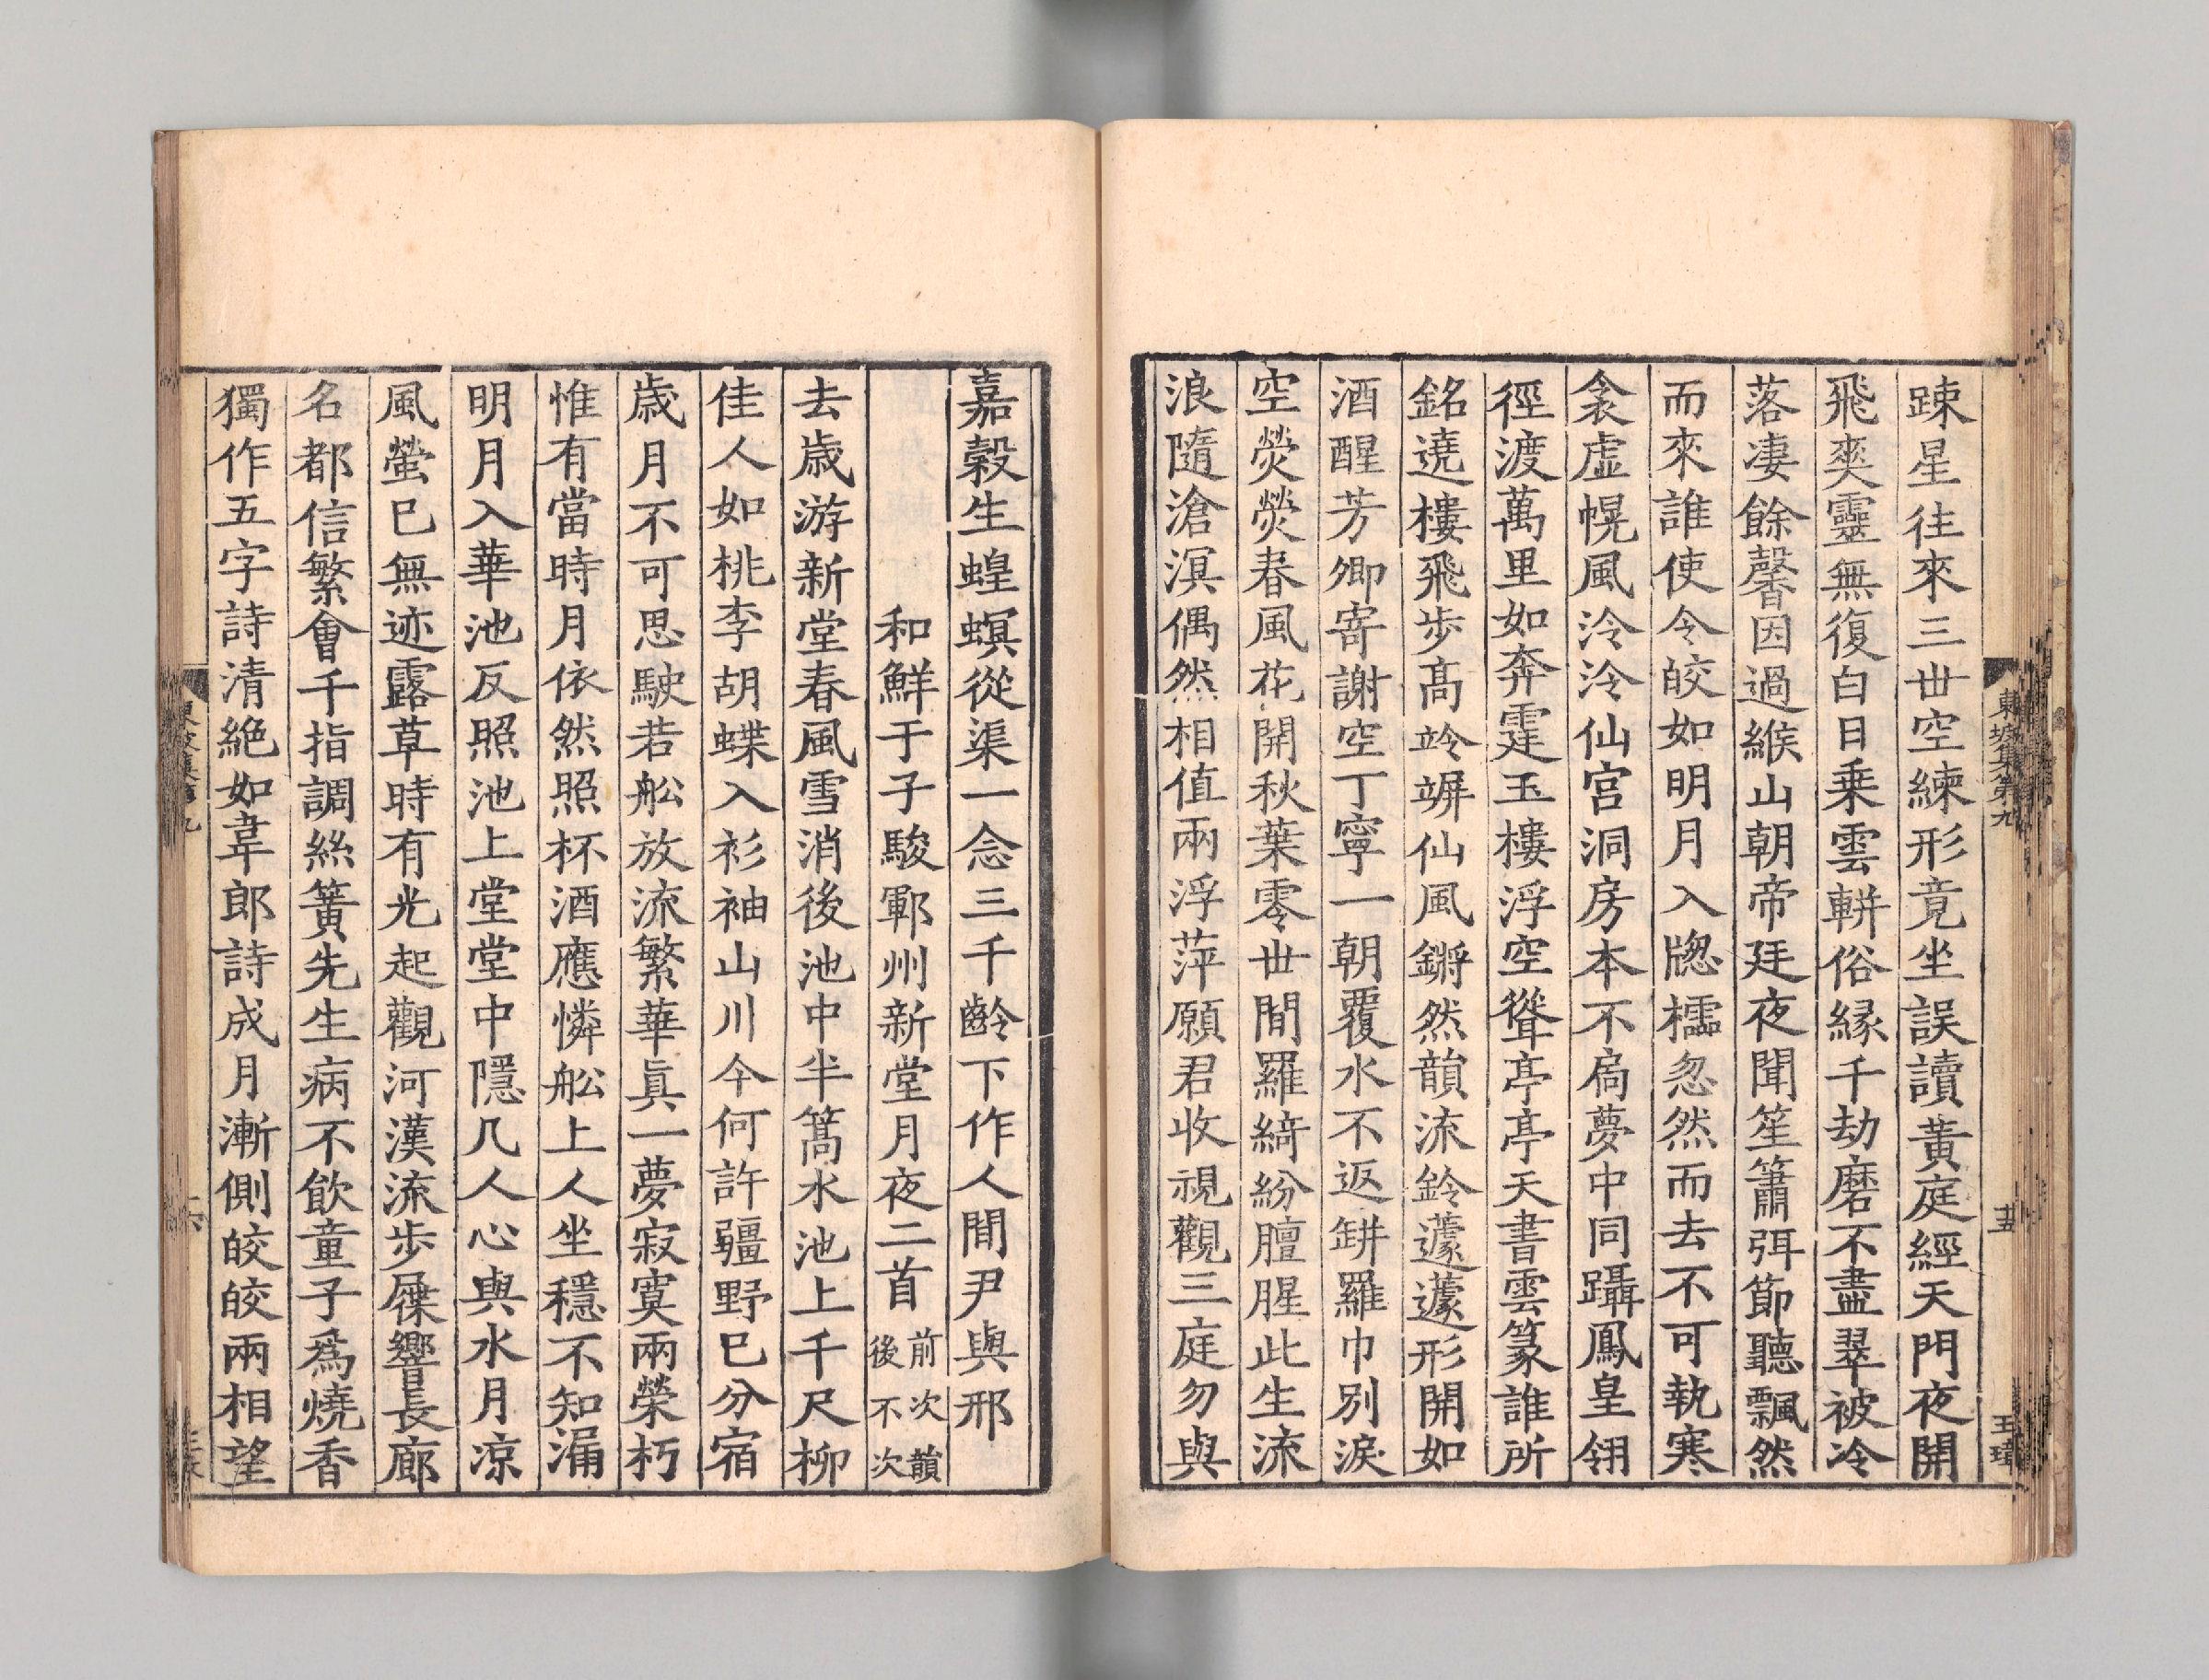 東坡集第九
十五
王瑋
踈星往來三丗空練形竟坐誤讀黃庭經天門夜開
飛爽靈無復白日乗雲軿俗縁千劫磨不盡翠被冷
落凄餘馨因過緱山朝帝廷夜聞笙簫弭節聽飄然
而來誰使令皎如明月入牎櫺忽然而去不可執寒
衾虚幌風泠泠仙宮洞房本不扃夢中同躡鳳皇翎
徑渡萬里如奔霆玉樓浮空聳亭亭天書雲篆誰所
銘遶樓飛步髙竛竮仙風鏘然韻流鈴蘧蘧形開如
酒醒芳卿寄謝空丁寧一朝覆水不返缾羅巾別淚
空熒熒春風花開秋葉零丗間羅綺紛膻腥此生流
浪隨滄溟偶然相值兩浮萍願君收視觀三庭勿與
嘉穀生蝗螟從渠一念三千齡下作人間尹與邢
和鮮于子駿鄆州新堂月夜二首前次韻後不次
去歲游新堂春風雪消後池中半篙水池上千尺柳
佳人如桃李胡蝶入衫袖山川今何許疆野已分宿
歲月不可思駛若舩放流繁華眞一夢寂寞兩榮朽
惟有當時月依然照杯酒應憐舩上人坐穩不知漏
明月入華池反照池上堂堂中隱几人心與水月凉
風螢已無迹露草時有光起觀河漢流步屧響長廊
名都信繁會千指調絲簧先生病不飲童子爲燒香
獨作五字詩清絶如韋郎詩成月漸側皎皎兩相望